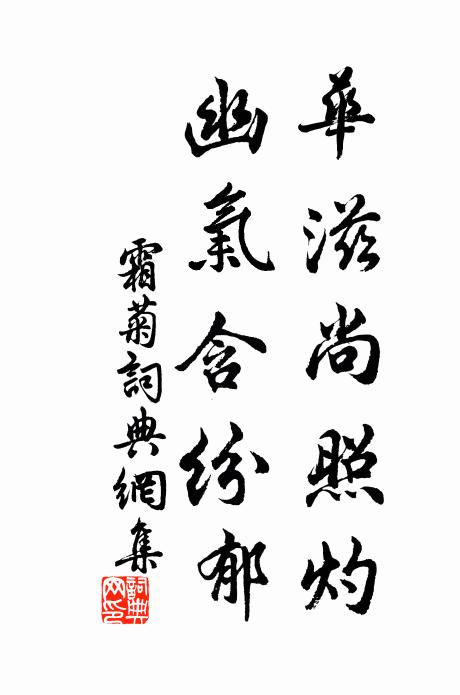 華滋尚照灼
幽氣含紛郁
霜菊詞典網集
詞典網印